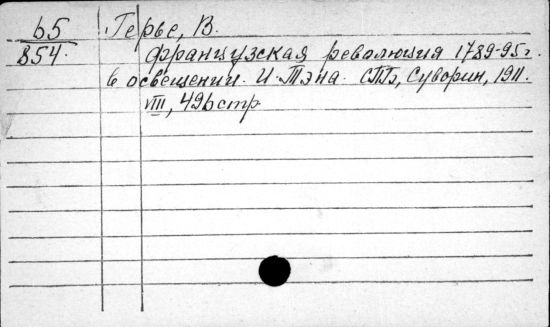 65 Герье, В.
В54. французская революция 1789-95 г.
в освещении. И. Тэна. СПб, Суворин, 1911.
VIII, 496 стр